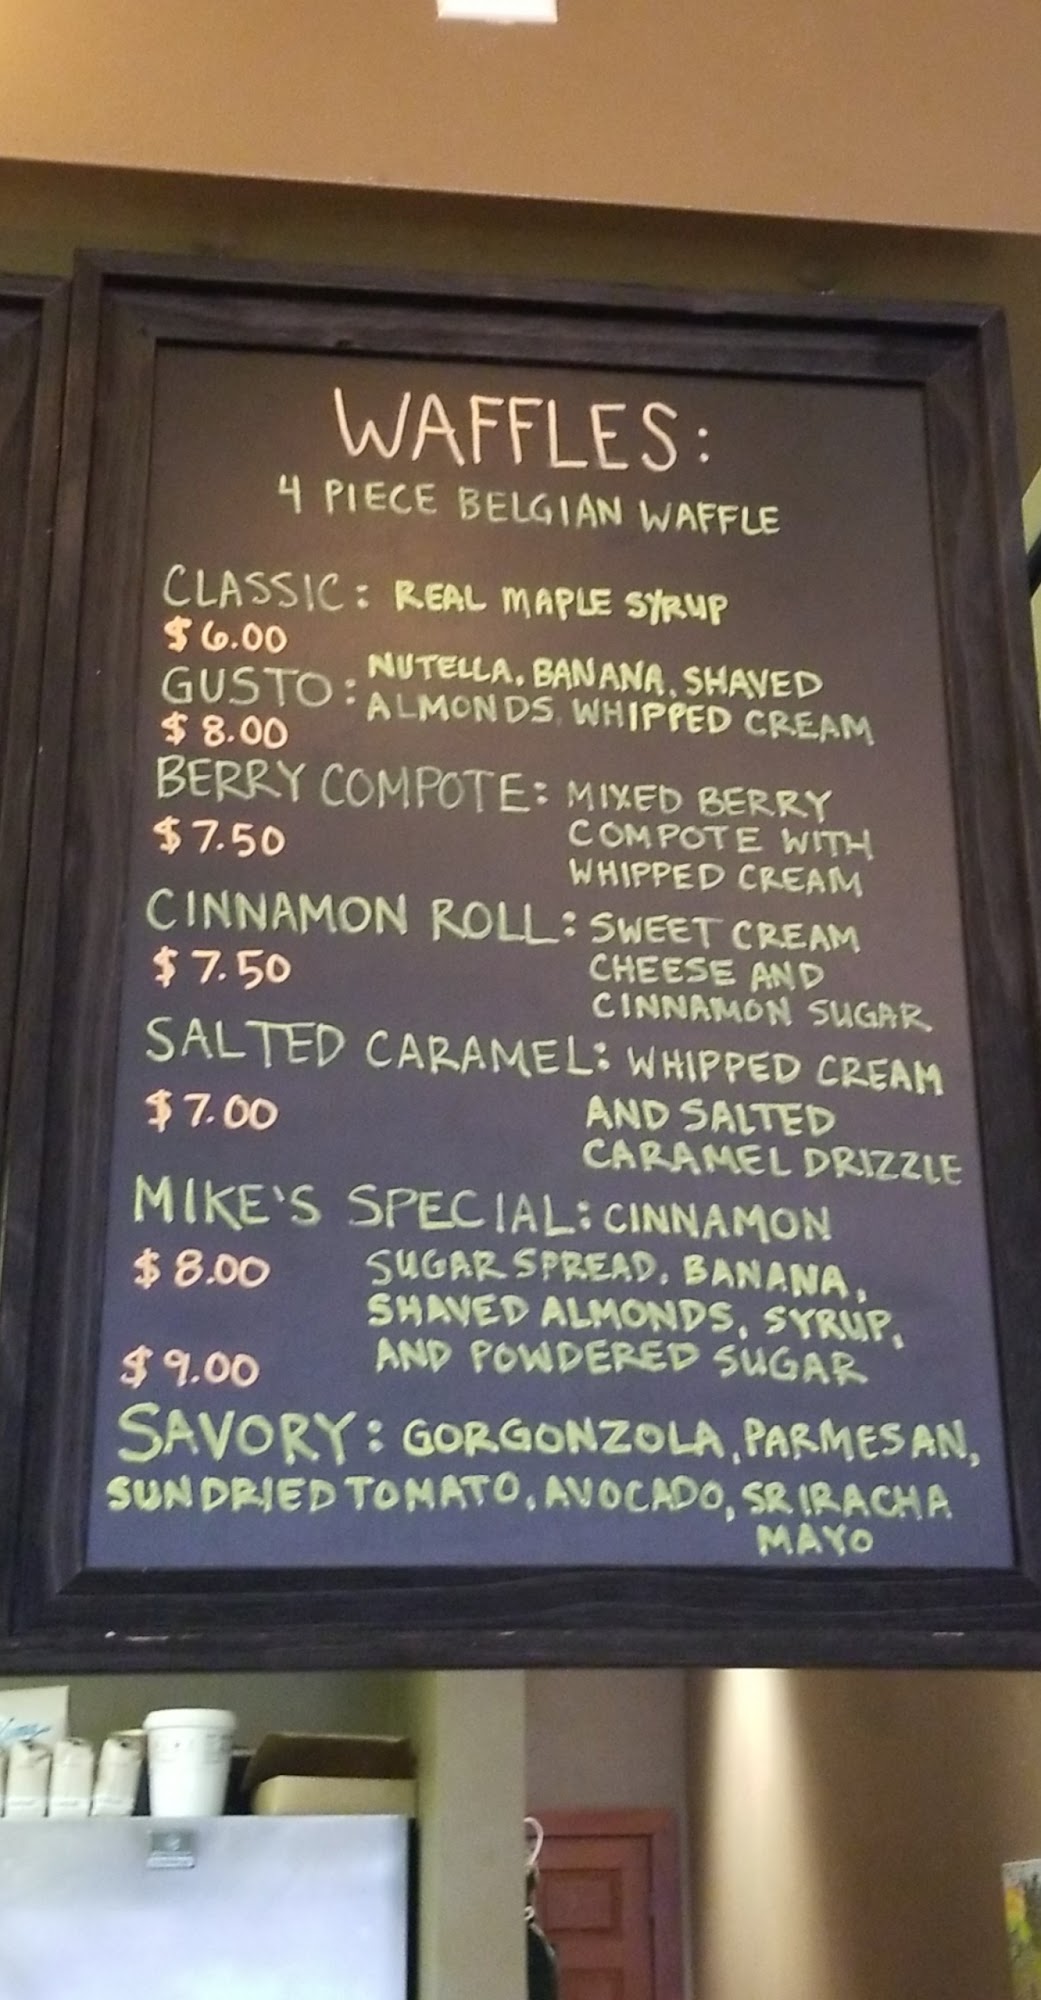 WAFFLES:
4 PIECE BELGIAN WAFFLE
CLASSIC: REAL MAPLE SYRUP
$6.00
GUSTO: NUTELLA, BANANA, SHAVED
ALMONDS, WHIPPED CREAM
$8.00
BERRY COMPOTE: MIXED BERRY
$7.50 COMPOTE WITH
WHIPPED CREAM
CINNAMON ROLL: SWEET CREAM
$7.50 CHEESE AND
CINNAMON SUGAR
SALTED CARAMEL: WHIPPED CREAM
$7.00 AND SALTED
CARAMEL DRIZZLE
MIKE'S SPECIAL: CINNAMON
$8.00 SUGAR SPREAD, BANANA,
SHAVED ALMONDS, SYRUP,
$9.00 AND POWDERED SUGAR
SAVORY: GORGONZOLA, PARMESAN,
SUNDRIED TOMATO, AVOCADO, SRIRACHA
MAYO